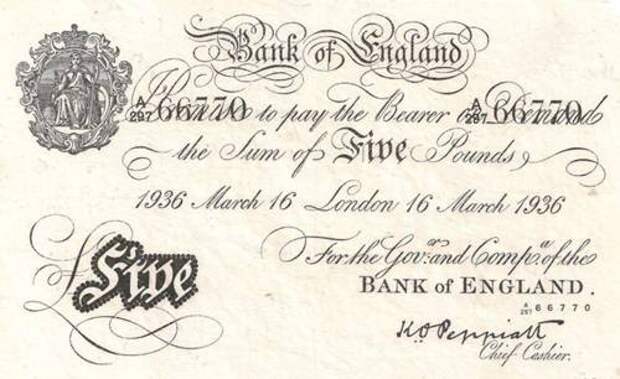 Bank of England
A/297 66770 A/297 66770
I Promise to pay the Bearer on Demand
the Sum of Five Pounds
1936 March 16 London 16 March 1936
For the Govr. and Compa. of the
BANK of ENGLAND.
£Five
A/297 66770
K.O. Peppiatt
Chief Cashier.